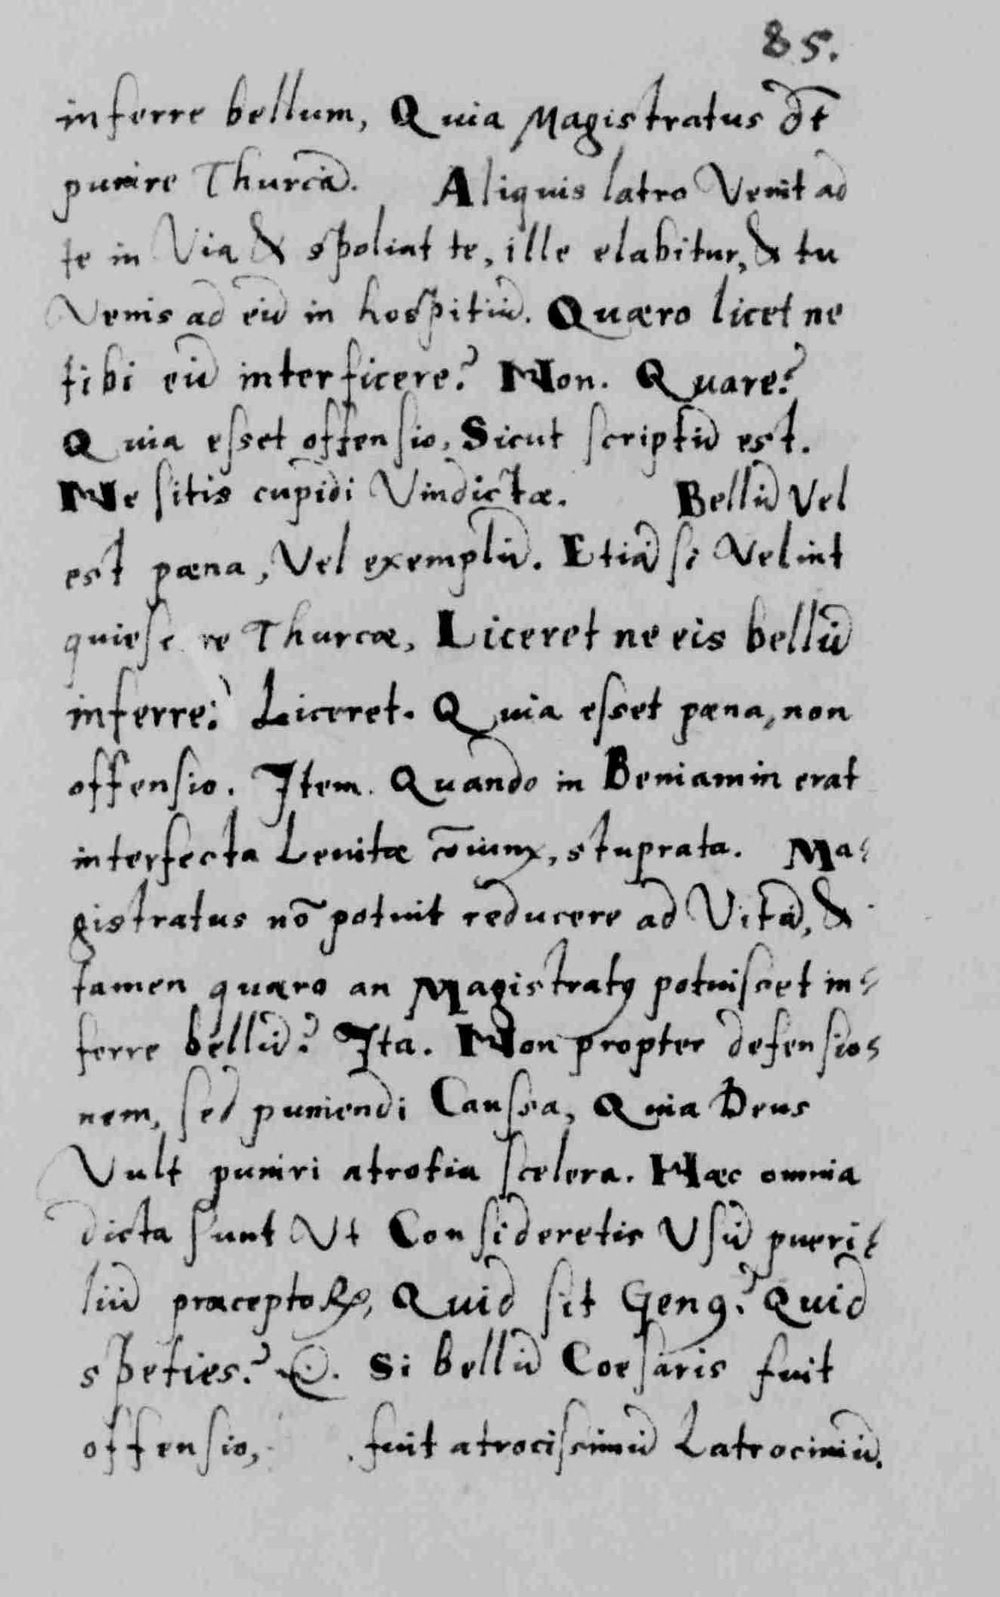 85.
inferre bellum, Quia Magistratus d̃t
punire Thurcã. Aliquis latro Venit ad
te in Via & spoliat te, ille elabitur, & tu
Venis ad eũ in hospitiũ. Quæro licet ne
tibi eũ interficere? Non. Quare?
Quia esset offensio, Sicut scriptũ est.
Ne sitis cupidi Vindictæ. Bellũ Vel
est pæna, Vel exemplũ. Etiã si Velint
quiesc re Thurcæ, Liceret ne eis bellũ
inferre? Liceret. Quia esset pæna, non
offensio. Item. Quando in Beniamin erat
interfecta Levitæ cõiunx, stuprata. Ma-
gistratus nõ potuit reducere ad Vitã, &
tamen quæro an Magistratꝰ potuisset in-
ferre bellũ? Ita. Non propter defensio-
nem, sed puniendi Caussa, Quia Deus
Vult puniri atrotia scelera. Hæc omnia
dicta sunt Ut Consideretis Usũ pueri-
liũ præceptoꝝ, Quid sit Genꝰ? Quid
speties? Si bellũ Coesaris fuit
offensio, fuit atrocissimũ Latrociniũ.